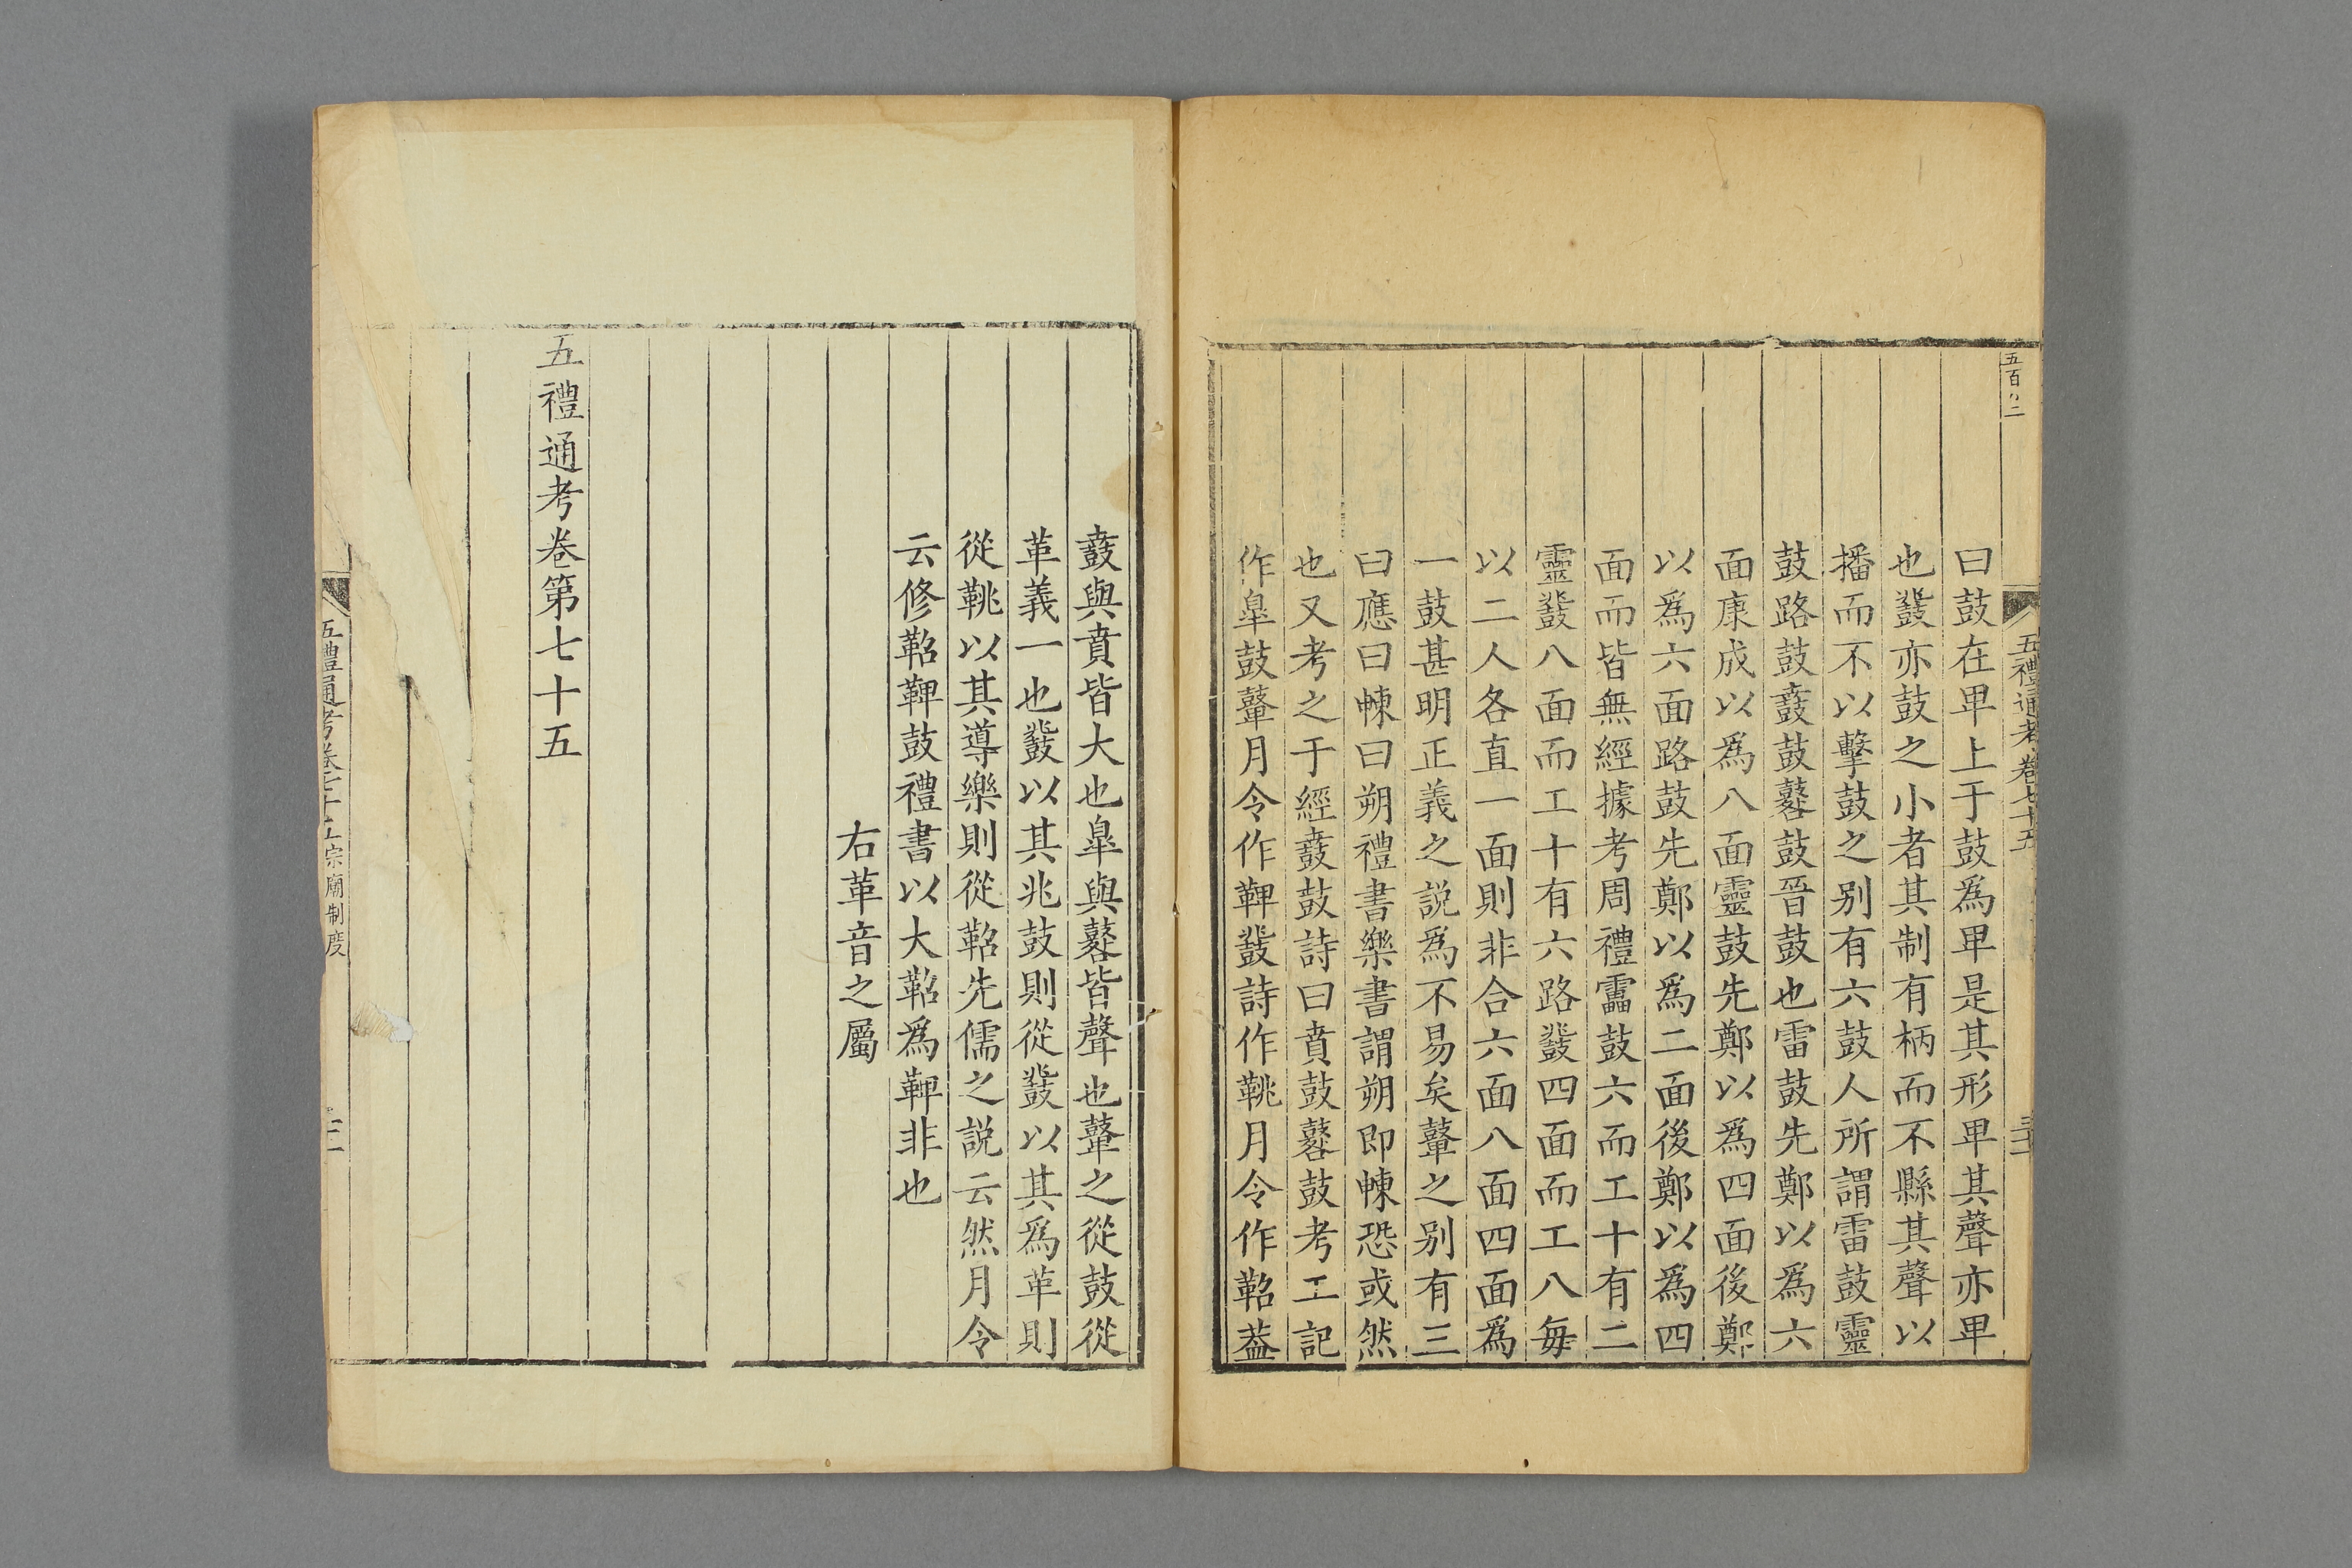 五禮通考卷七十五
曰鼓在𤰞上于鼓爲𤰞是其形𤰞其聲亦𤰞
也鼗亦鼓之小者其制有柄而不縣其聲以
播而不以擊鼓之别有六鼓人所謂雷鼓靈
鼓路鼓鼖鼓鼛鼓晉鼓也雷鼓先鄭以爲六
面康成以爲八面靈鼓先鄭以爲四面後鄭
以爲六面路鼓先鄭以爲二面後鄭以爲四
面而皆無經據考周禮靁鼓六而工十有二
靈鼗八面而工十有六路鼗四面而工八每
以二人各直一面則非合六面八面四面爲
一鼓甚明正義之說爲不易矣鼙之别有三
曰應曰朄曰朔禮書樂書謂朔即朄恐或然
也又考之于經鼖鼓詩曰賁鼓鼛鼓考工記
作臯鼓鼙月令作鞞鼗詩作鞉月令作鞀葢
鼖與賁皆大也臯與鼛皆聲也鼙之從鼓從
革義一也鼗以其兆鼓則從鼗以其爲革則
從鞉以其導樂則從鞀先儒之說云然月令
云修鞀鞞鼓禮書以大鞀爲鞞非也
右革音之屬
五禮通考卷第七十五
五禮通考卷七十五宗廟制度